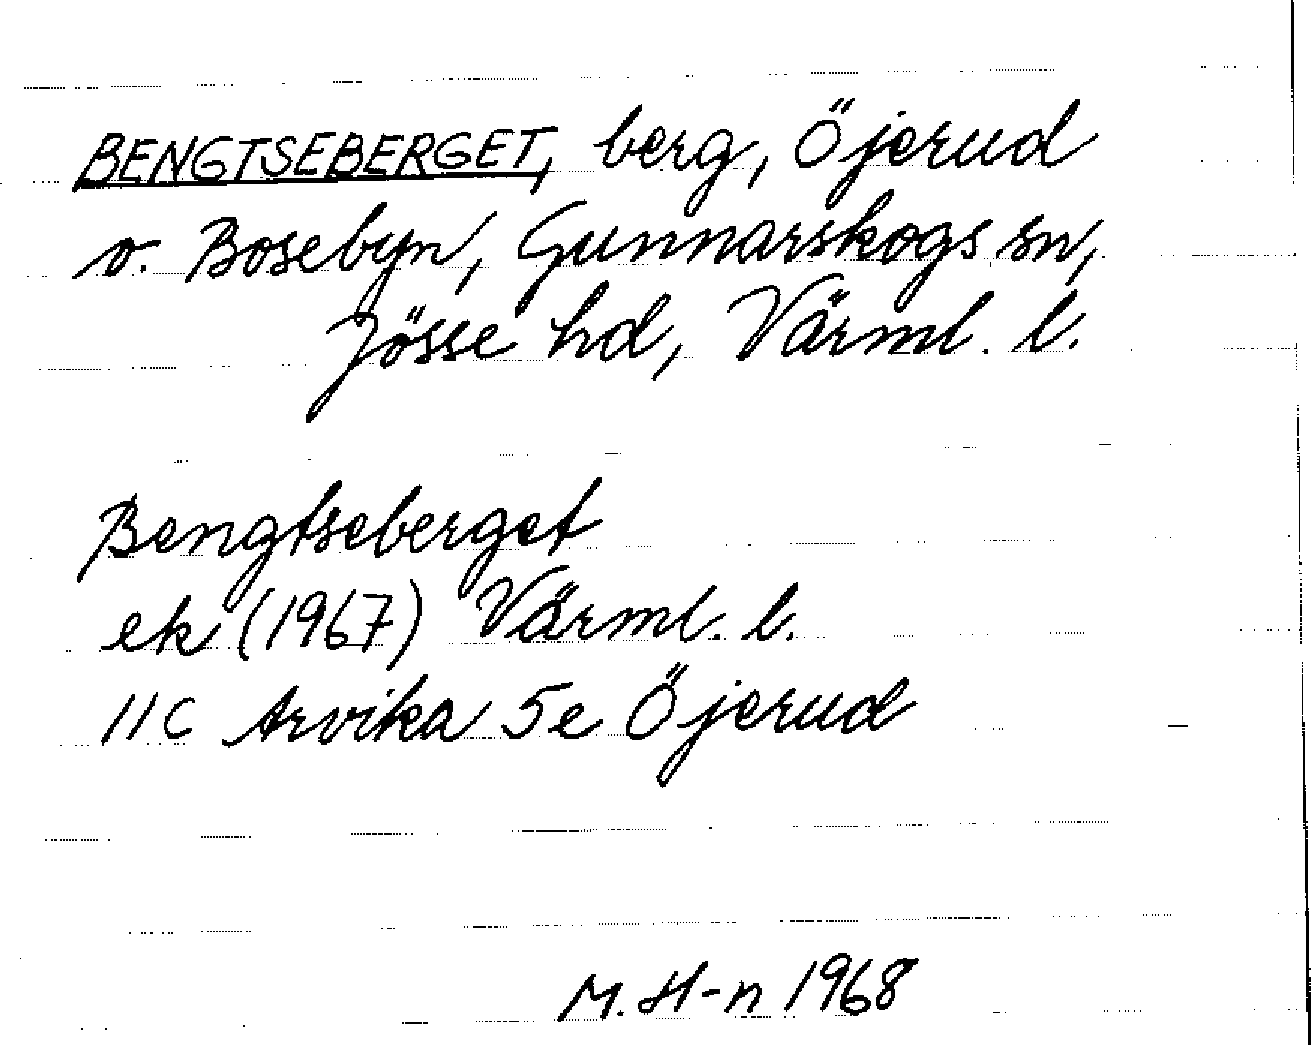 BENGTSEBERGET, berg, Öjerud
o. Bosebyn, Gunnarskogs sn,
Jösse hd, Värml. l.
Bengtseberget
ek (1967) Värml. l.
11C Arvika 5e Öjerud
M. H-n 1968